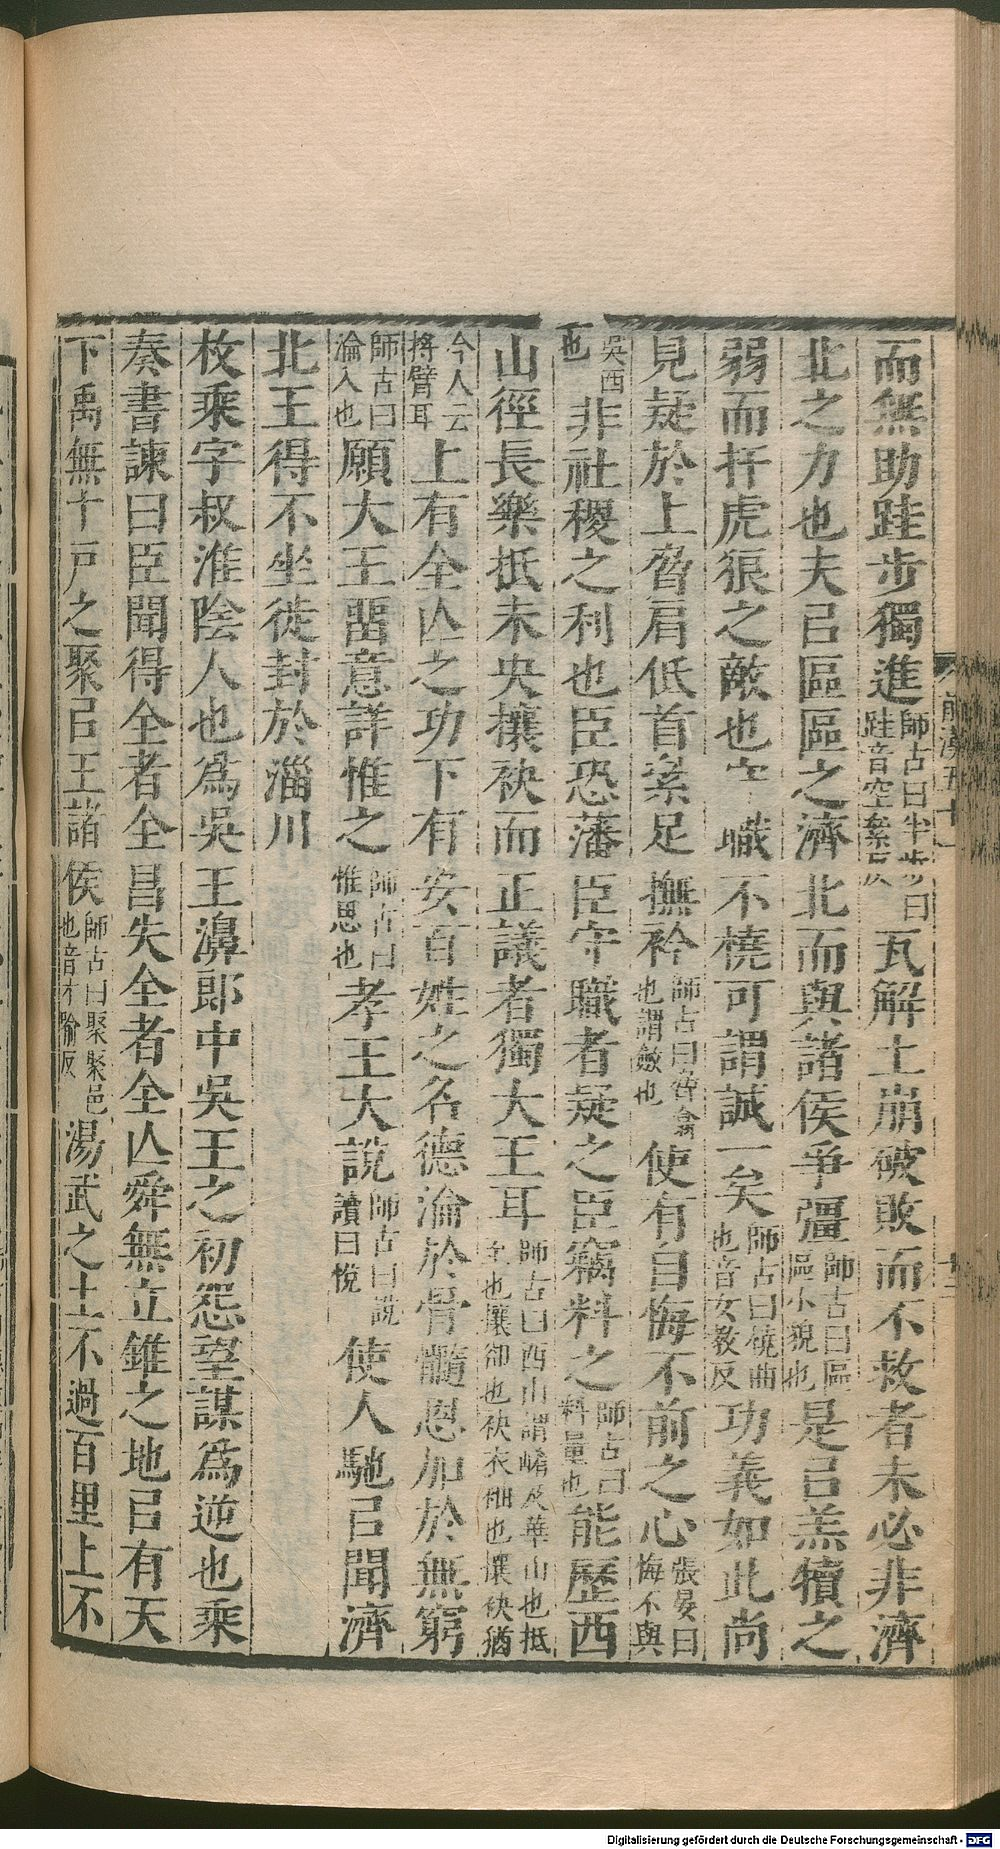 而無助跬步獨進師古曰半步曰跬音空絫反瓦解土崩破敗而不救者未必非濟
北之力也夫㠯區區之濟北而與諸侯爭彊師古曰區區小貌也是㠯羔犢之
弱而扞虎狼之敵也守職不橈可謂誠一矣師古曰橈曲也音女敎反功義如此尚
見疑於上脅肩低首絫足撫衿師古曰脅翕也謂斂也使有自悔不前之心張晏曰悔不與
吳西也非社稷之利也臣恐藩臣守職者疑之臣竊料之師古曰料量也能歷西
山徑長樂抵未央攘袂而正議者獨大王耳師古曰西山謂崤及華山也抵至也攘卻也袂衣袖也攘袂猶
今人云捋臂耳上有全亾之功下有安百姓之名德淪於骨髓恩加於無窮
師古曰淪入也願大王畱意詳惟之師古曰惟思也孝王大說師古曰說讀曰悅使人馳㠯聞濟
北王得不坐徙封於淄川
枚乘字叔淮陰人也爲吳王濞郎中吳王之初怨望謀爲逆也乘
奏書諫曰臣聞得全者全昌失全者全亾舜無立錐之地㠯有天
下禹無十戶之聚㠯王諸侯師古曰聚聚邑也音才喻反湯武之土不過百里上不
前漢五十一
廿二
Digitalisierung gefördert durch die Deutsche Forschungsgemeinschaft - DFG